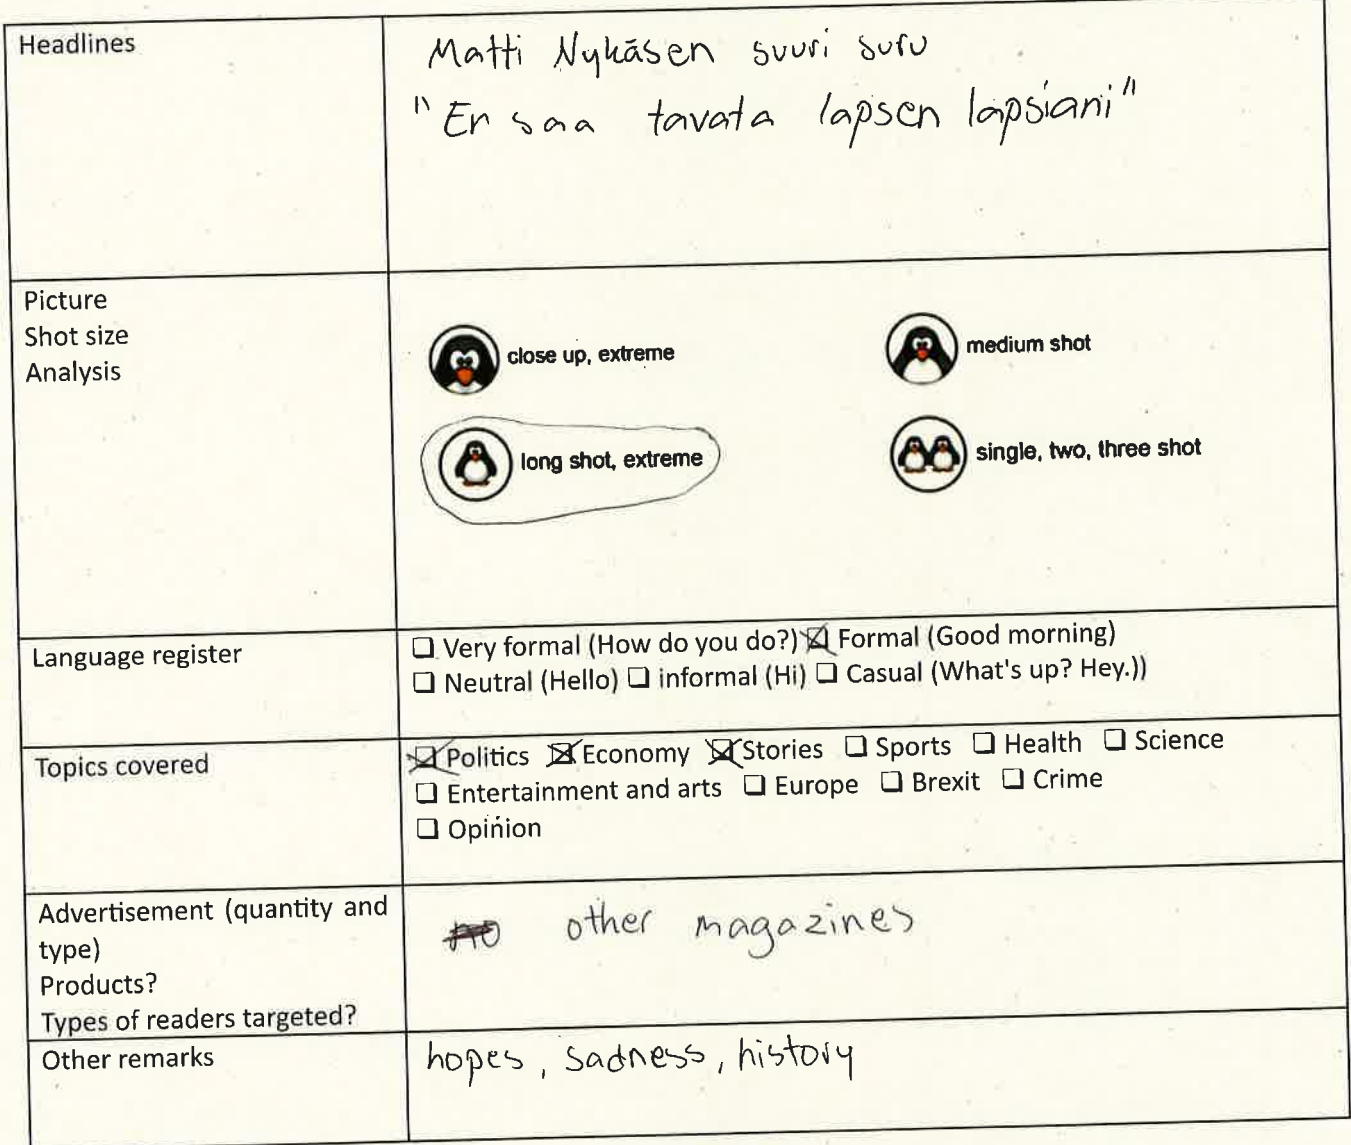 Headlines
Matti Nykäsen suuri suru
"En saa tavata lapsen lapsiani"
Picture
Shot size
Analysis
close up, extreme
medium shot
long shot, extreme
single, two, three shot
Language register
☐ Very formal (How do you do?) ☒ Formal (Good morning)
☐ Neutral (Hello) ☐ informal (Hi) ☐ Casual (What's up? Hey.))
Topics covered
☒ Politics ☒ Economy ☒ Stories ☐ Sports ☐ Health ☐ Science
☐ Entertainment and arts ☐ Europe ☐ Brexit ☐ Crime
☐ Opinion
Advertisement (quantity and
type)
Products?
Types of readers targeted?
other magazines
Other remarks
hopes, sadness, history